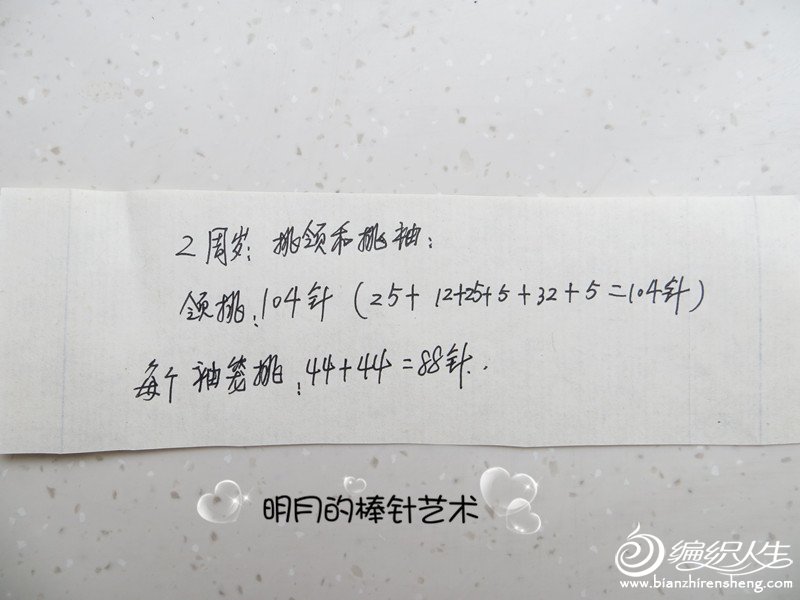 2周岁:挑领和挑袖:
领挑:104针(25+12+25+5+32+5=104针)
每个袖笼挑:44+44=88针.
明月的棒针艺术
编织人生
www.bianzhirensheng.com